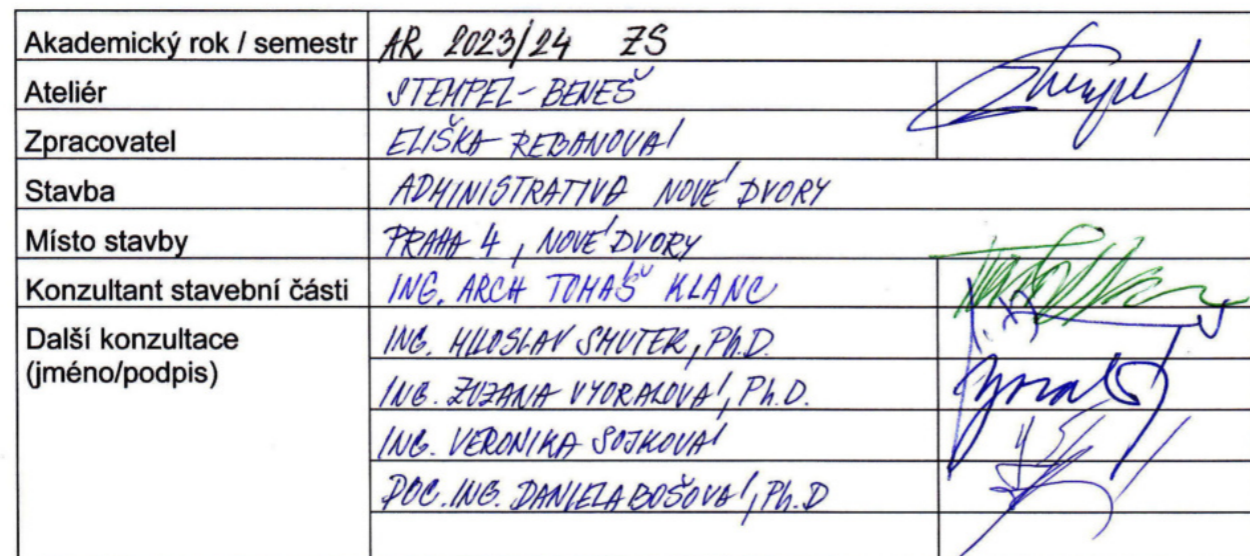 Akademický rok / semestr AR 2023/24 ZS
Ateliér STEMPEL-BENEŠ
Zpracovatel ELIŠKA ŘEBANOVÁ
Stavba ADMINISTRATIVA NOVÉ DVORY
Místo stavby PRAHA 4, NOVÉ DVORY
Konzultant stavební části ING. ARCH TOMÁŠ KLANC
Další konzultace ING. MILOSLAV SMUTEK, Ph.D.
(jméno/podpis)
ING. ZUZANA VYORALOVÁ, Ph.D.
ING. VERONIKA SOJKOVÁ
DOC. ING. DANIELA BOŠOVÁ, Ph.D